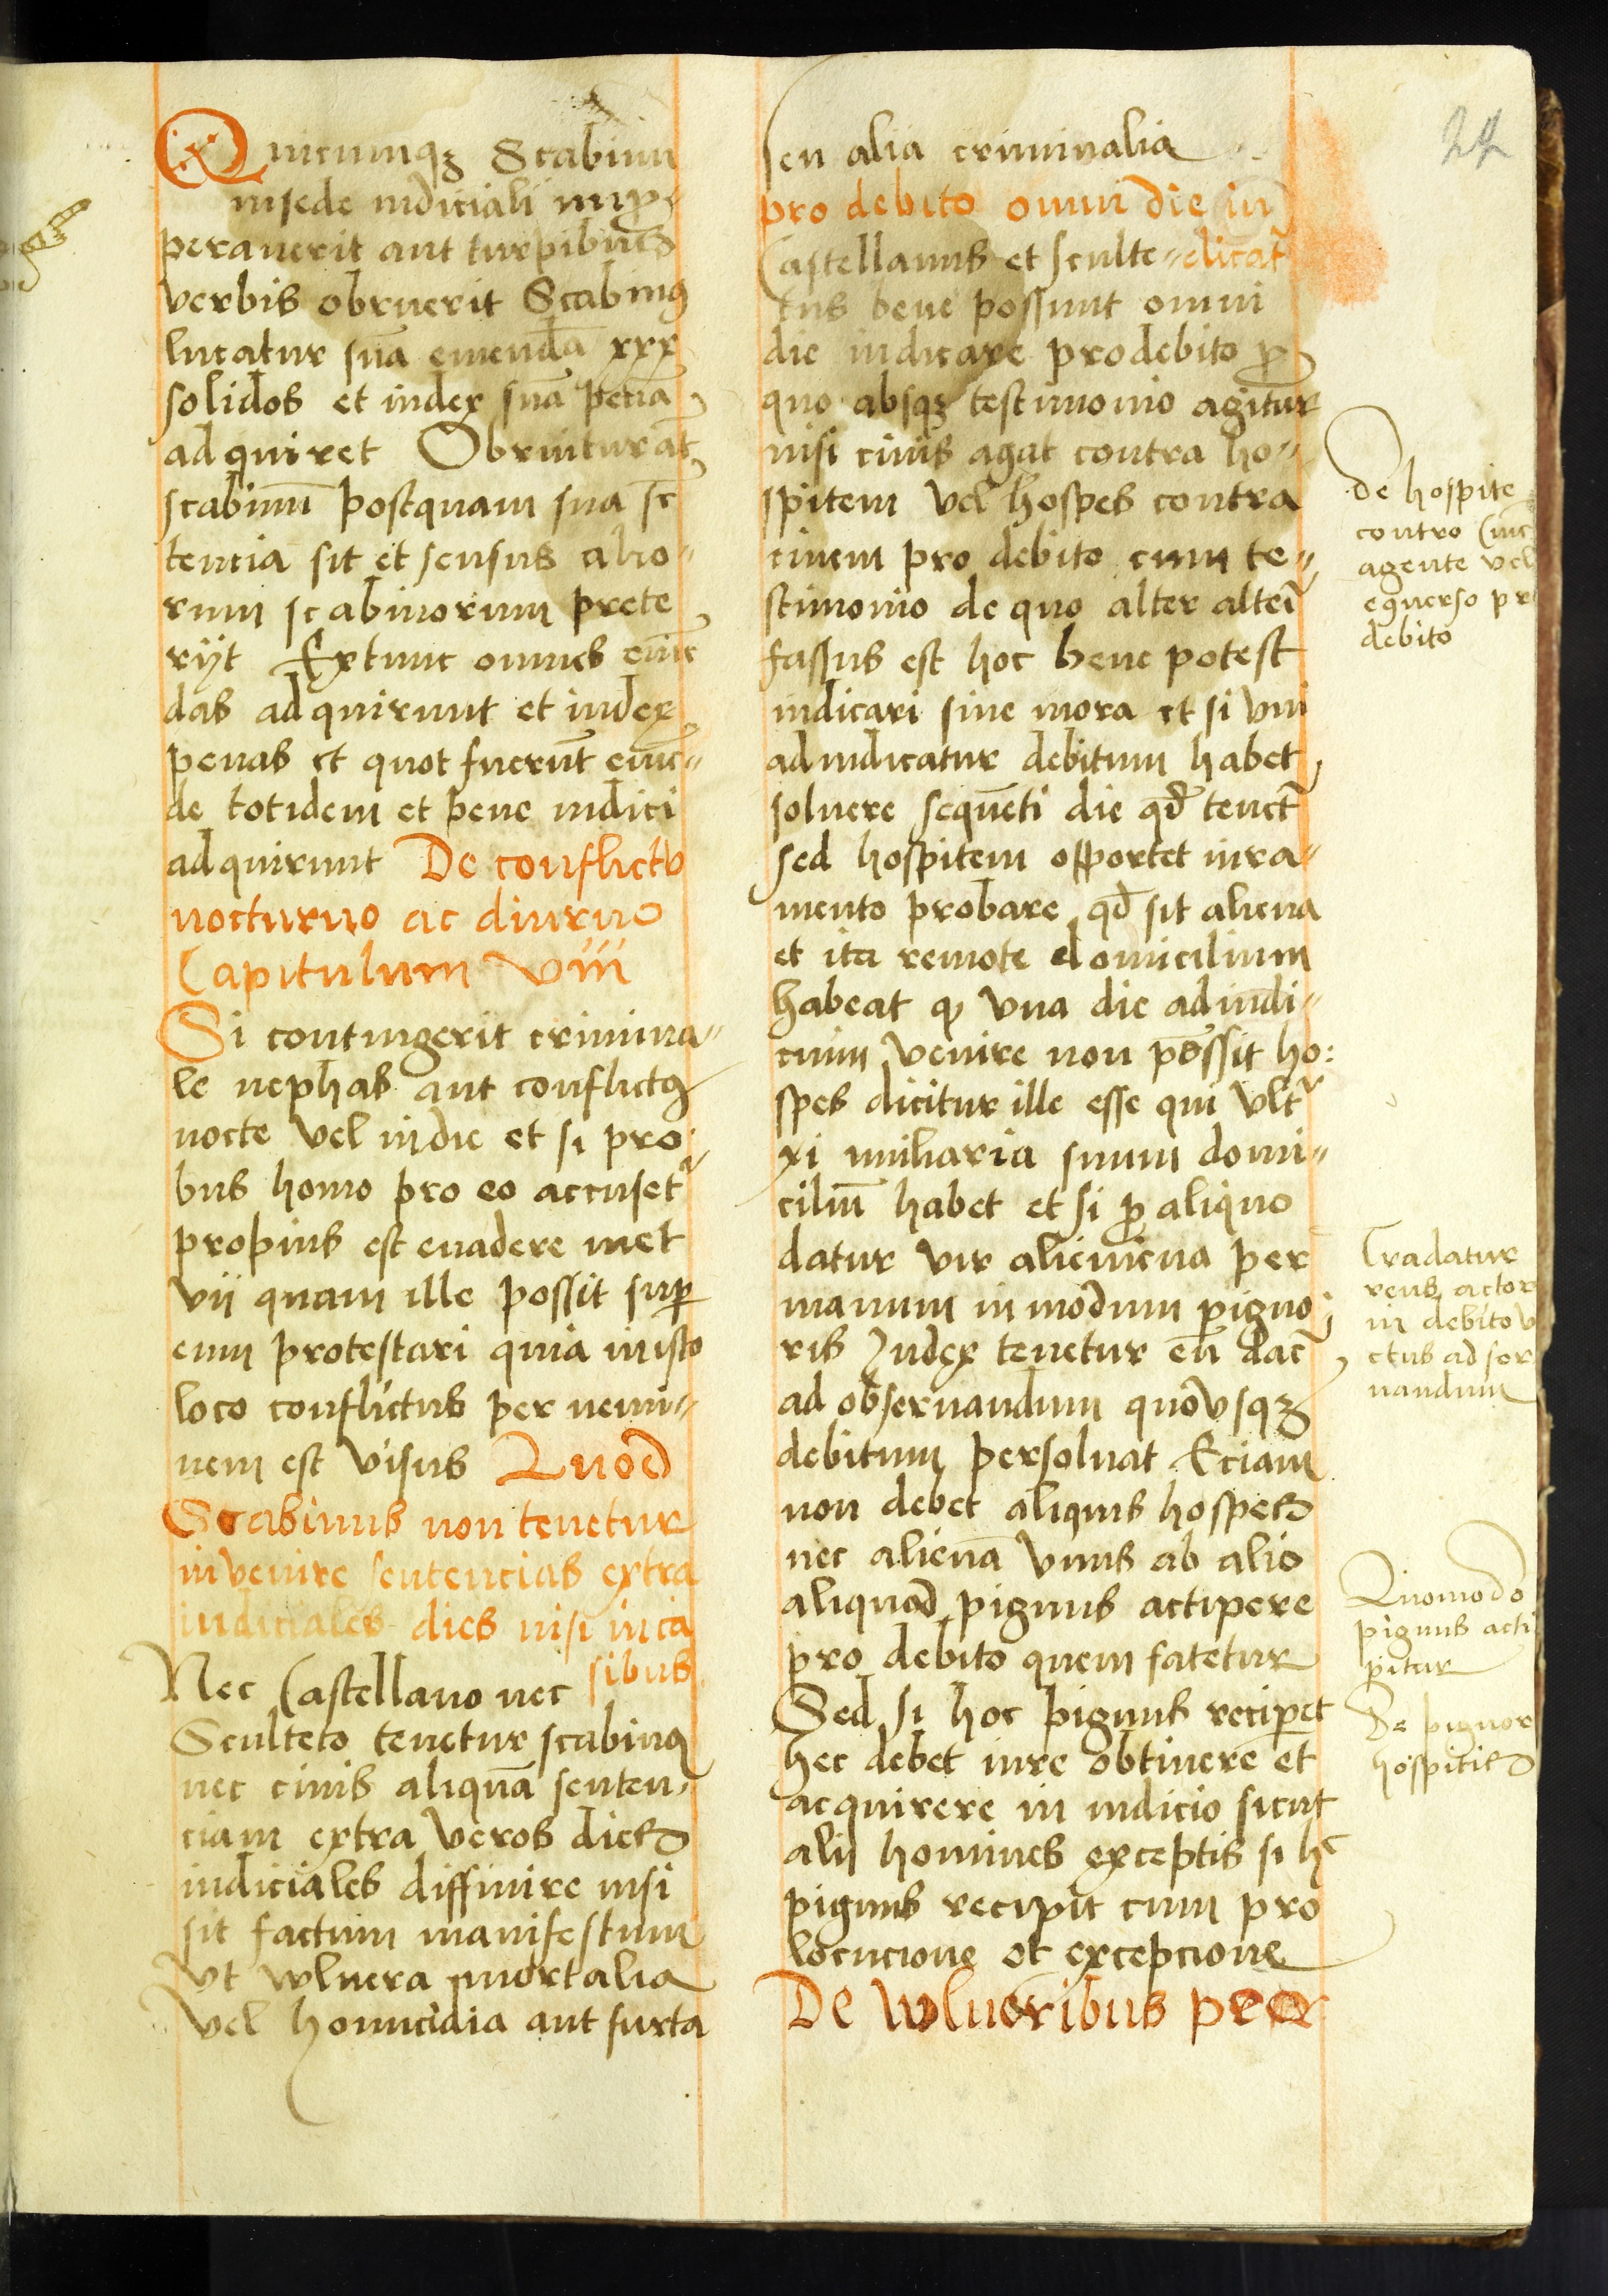 24
Quicumqꝫ Scabinū
in sede iudiciali imp̄
perauerit aut turpibus
verbis obruerit Scabinꝰ
lucatur suā emendā xxx
solidos et iudex suā penā
adquiret Obruitur at̄
scabinū postquam sua sē
tencia sit et sensus alio⸗
rum scabinorum prete
rijt Extunc omnes emē
das adquirunt et iudex
penas et quot fuerūt emē⸗
de totidem et pene iudici
adquirunt De conflictu
nocturno ac diurno
Capitulum viii
Si contingerit crimina⸗
le nephas aut conflictꝰ
nocte vel in die et si pro
bus homo pro eo accuset᷑
propius est euadere met
vij quam ille possit suꝑ
eum protestari quia in isto
loco conflictus per nemi⸗
nem est visus Quod
Scabinus non tenetur
invenire sentencias extra
iudiciales dies nisi in ca
sibus
Nec Castellano nec
Sculteto tenetur scabinꝰ
nec ciuis aliquā senten⸗
ciam extra veros dies
iudiciales diffinire nisi
sit factum manifestum
vt wlnera mortalia
vel homicidia aut furta
seu alia criminalia
pro debito omni die iu
Castellanus et sculte⸗ dicat᷑
tus bene possunt omni
die iudicare pro debito ꝓ
quo absqꝫ testimonio agitur
nisi ciuis agat contra ho⸗
spitem vel hospes contra
ciuem pro debito cum te⸗
stimonio de quo alter alteī
fassus est hoc bene potest
iudicari sine mora et si vni
adiudicatur debitum habet
soluere sequēti die qđ tenet᷑
sed hospitem opportet iura⸗
mento probare qđ sit aliena
et ita remote domicilium
habeat ꝙ vna die ad iudi⸗
cium venire non possit ho:
spes dicitur ille esse qui vlt᷑
xi miliaria suum domi⸗
ciliū habet et si ꝓ aliquo
datur vir alienicna per
manum in modum pigno
ris Iudex tenetur eū dar̄
ad obseruandum quovsqꝫ
debitum persoluat Eciam
non debet aliquis hospes
nec alienā vnus ab alio
aliquod pignus accipere
pro debito quem fatetur
Sed si hoc pignus reciperet
hec debet iure obtinere et
acquirere in iudicio sicut
alij homines exceptis si hͨ
pignus recipit cum pro
locucione et excepcione
De wlneribus pro
De hospite
contro ciuē
agente vel
equerso pr
debito
Tradatur
reus actor
in debito v
ctus ad ser
uandum
Quomodo
pignus acci
pitur
De pignor
hospitis